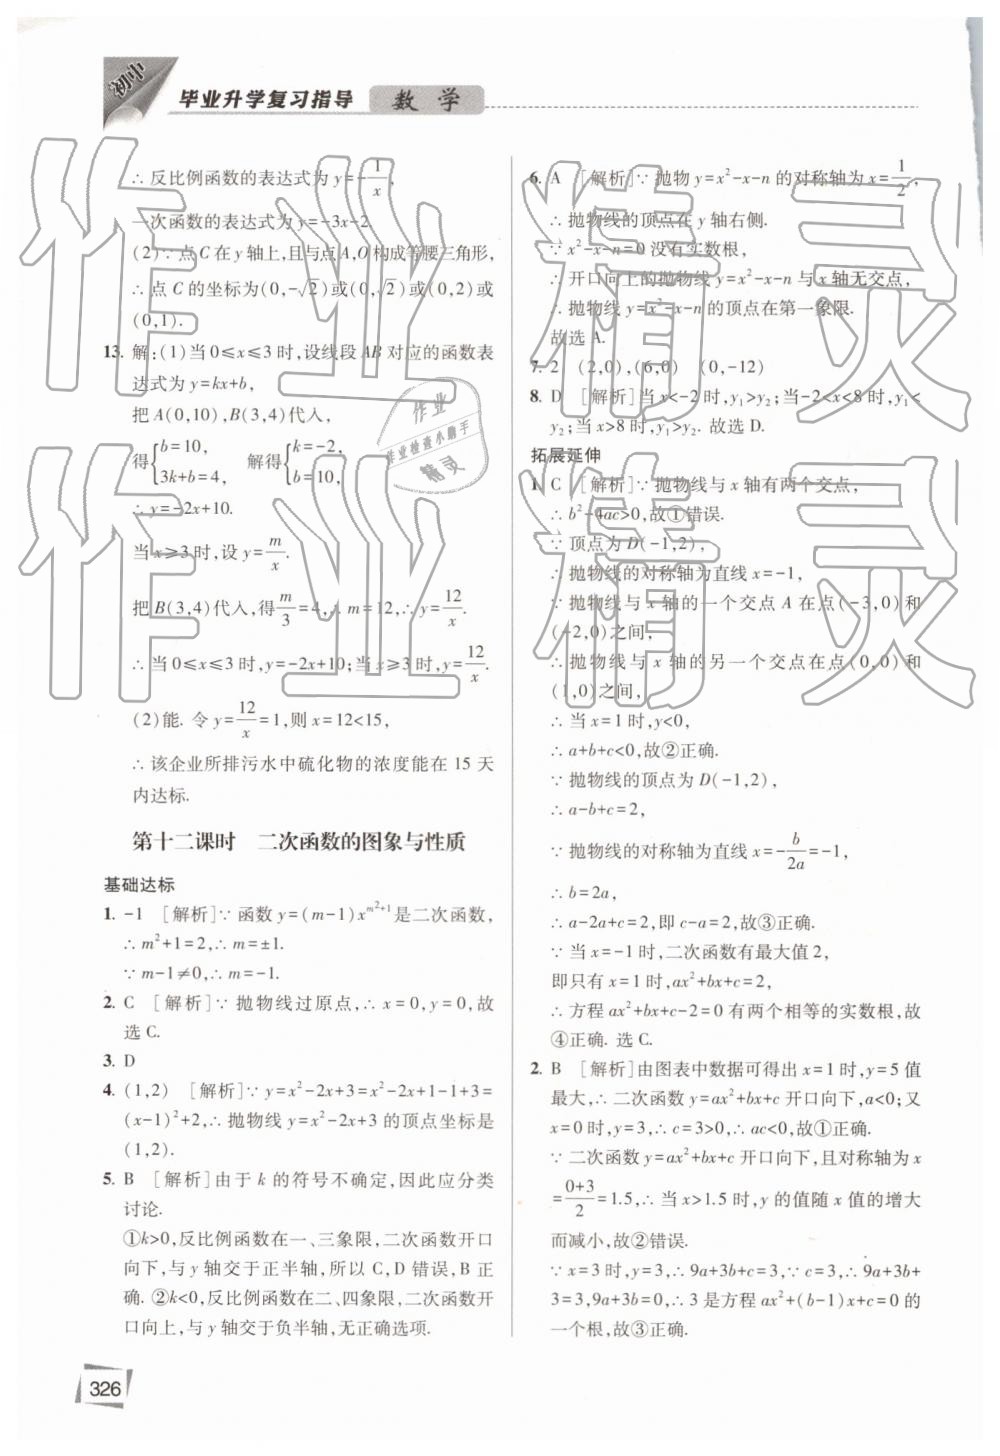 初中
毕业升学复习指导 数学
∴反比例函数的表达式为 y=-1/x,
一次函数的表达式为 y=-3x-2.
(2)∵点C在y轴上,且与点A,O构成等腰三角形,
∴点C的坐标为(0,-√2)或(0,√2)或(0,2)或
(0,1).
13. 解:(1)当0≤x≤3时,设线段AB对应的函数表
达式为y=kx+b,
把A(0,10),B(3,4)代入,
得{b=10, 3k+b=4, 解得{k=-2, b=10,
∴y=-2x+10.
当x≥3时,设y=m/x.
把B(3,4)代入,得m/3=4,∴m=12,∴y=12/x.
∴当0≤x≤3时,y=-2x+10;当x≥3时,y=12/x.
(2)能. 令y=12/x=1,则x=12<15,
∴该企业所排污水中硫化物的浓度能在15天
内达标.
第十二课时 二次函数的图象与性质
基础达标
1. -1 [解析]∵函数y=(m-1)x^(m²+1)是二次函数,
∴m²+1=2,∴m=±1.
∵m-1≠0,∴m=-1.
2. C [解析]∵抛物线过原点,∴x=0,y=0,故
选C.
3. D
4. (1,2) [解析]∵y=x²-2x+3=x²-2x+1-1+3=
(x-1)²+2,∴抛物线y=x²-2x+3的顶点坐标是
(1,2).
5. B [解析]由于k的符号不确定,因此应分类
讨论.
①k>0,反比例函数在一、三象限,二次函数开口
向下,与y轴交于正半轴,所以C,D错误,B正
确. ②k<0,反比例函数在二、四象限,二次函数开
口向上,与y轴交于负半轴,无正确选项.
326
6. A [解析]∵抛物y=x²-x-n的对称轴为x=1/2,
∴抛物线的顶点在y轴右侧.
∵x²-x-n=0没有实数根,
∴开口向上的抛物线y=x²-x-n与x轴无交点,
∴抛物线y=x²-x-n的顶点在第一象限.
故选A.
7. 2 (2,0),(6,0) (0,-12)
8. D [解析]当x<-2时,y₁>y₂;当-2<x<8时,y₁<
y₂;当x>8时,y₁>y₂. 故选D.
拓展延伸
1. C [解析]∵抛物线与x轴有两个交点,
∴b²-4ac>0,故①错误.
∵顶点为D(-1,2),
∴抛物线的对称轴为直线x=-1,
∵抛物线与x轴的一个交点A在点(-3,0)和
(-2,0)之间,
∴抛物线与x轴的另一个交点在点(0,0)和
(1,0)之间,
∴当x=1时,y<0,
∴a+b+c<0,故②正确.
∵抛物线的顶点为D(-1,2),
∴a-b+c=2,
∵抛物线的对称轴为直线x=-b/2a=-1,
∴b=2a,
∴a-2a+c=2,即c-a=2,故③正确.
∵当x=-1时,二次函数有最大值2,
即只有x=1时,ax²+bx+c=2,
∴方程ax²+bx+c-2=0有两个相等的实数根,故
④正确. 选C.
2. B [解析]由图表中数据可得出x=1时,y=5值
最大,∴二次函数y=ax²+bx+c开口向下,a<0;又
x=0时,y=3,∴c=3>0,∴ac<0,故①正确.
∵二次函数y=ax²+bx+c开口向下,且对称轴为x
=(0+3)/2=1.5,∴当x>1.5时,y的值随x值的增大
而减小,故②错误.
∵x=3时,y=3,∴9a+3b+c=3,∵c=3,∴9a+3b+
3=3,9a+3b=0,∴3是方程ax²+(b-1)x+c=0的
一个根,故③正确.
作业精灵
作业精灵
作业
作业检查小助手
精灵